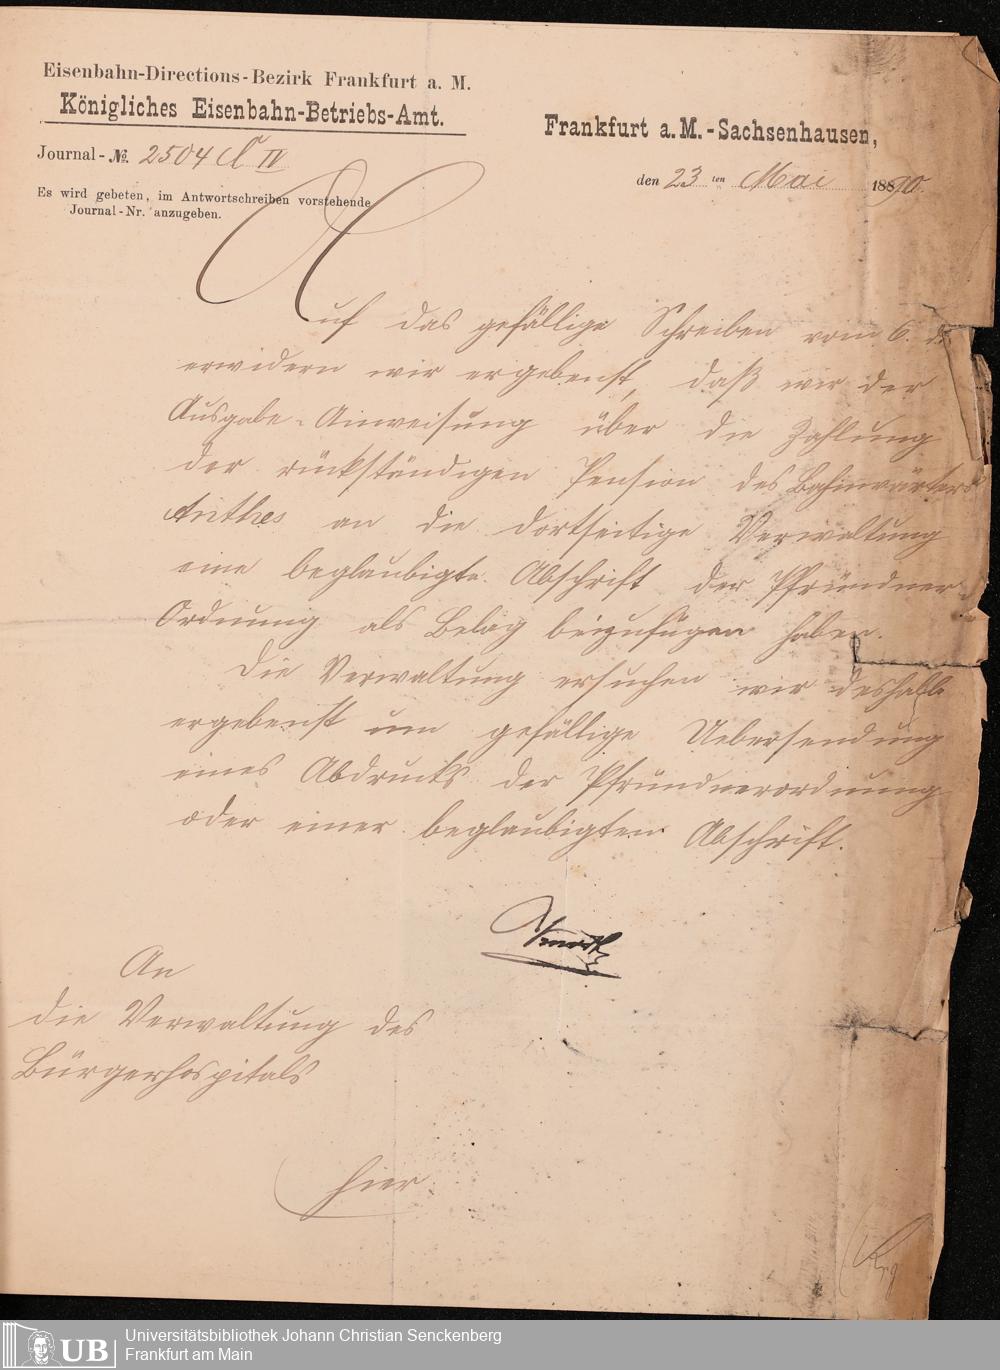 Eisenbahn-Directions-Bezirk Frankfurt a. M.
Königliches Eisenbahn-Betriebs-Amt.
Frankfurt a. M.-Sachsenhausen,
Journal-No. 2504 C IV
den 23ten Mai 1890.
Es wird gebeten, im Antwortschreiben vorstehende
Journal-Nr. anzugeben.
Auf das gefällige Schreiben vom 6. ds
erwidern wir ergebenst, daß wir der
Ausgabe-Anweisung über die Zahlung
der rückständigen Pension des Bahnwärters
Anthes an die dortseitige Verwaltung
eine beglaubigte Abschrift der Pfründner-
Ordnung als Belag beizufügen haben.
Die Verwaltung ersuchen wir deshalb
ergebenst um gefällige Uebersendung
eines Abdrucks der Pfründnerordnung
oder einer beglaubigten Abschrift.
An
die Verwaltung des
Bürgerhospitals
hier
UB
Universitätsbibliothek Johann Christian Senckenberg
Frankfurt am Main